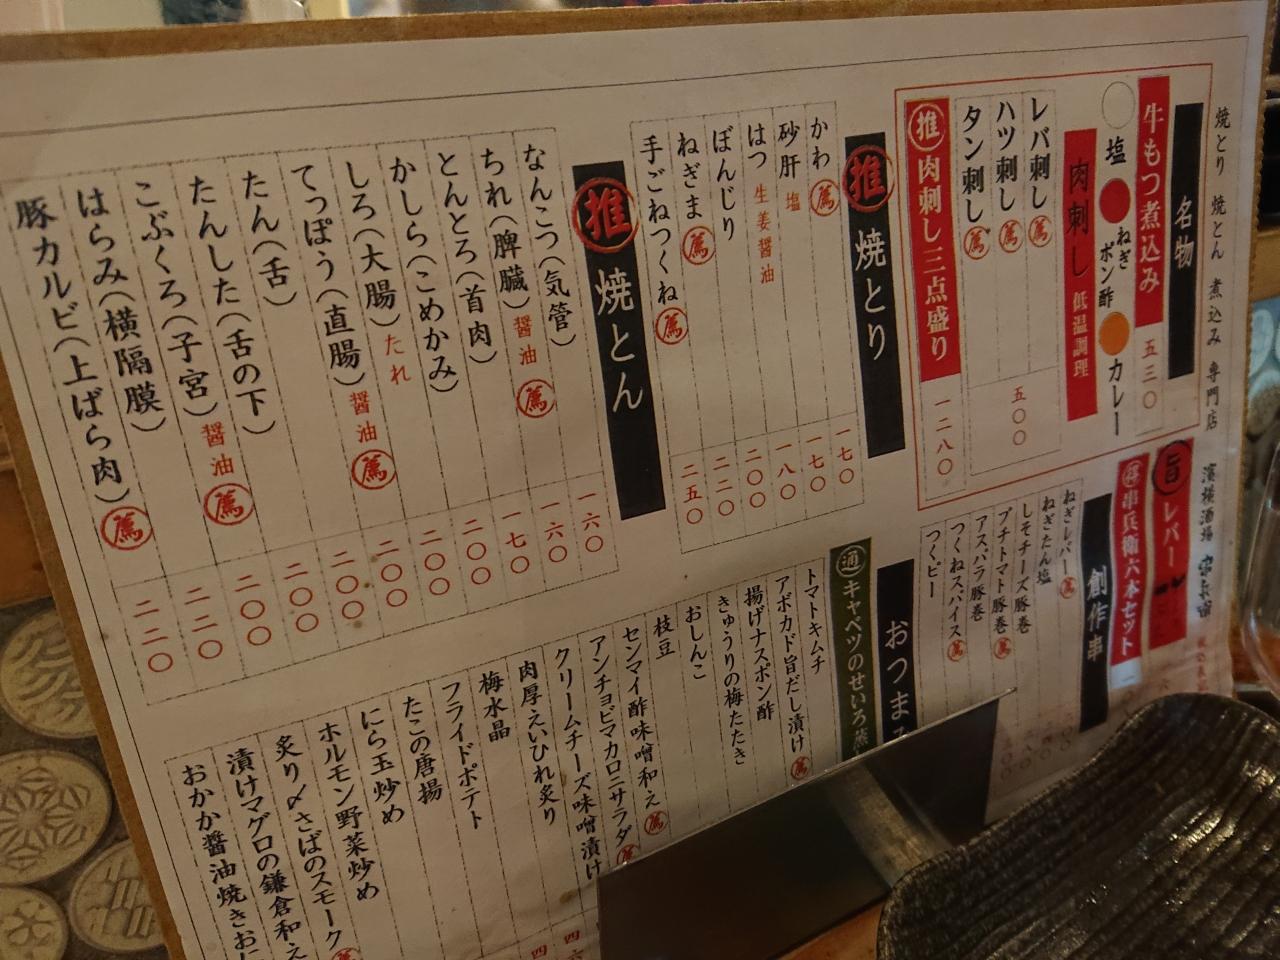 焼とり 焼とん 煮込み 専門店
濱横酒場
名物
牛もつ煮込み 五三〇
塩 ねぎポン酢 カレー
肉刺し 低温調理
レバ刺し 薦
ハツ刺し 薦
タン刺し 薦
五〇〇
推 肉刺し三点盛り 一二八〇
推 焼とり
かわ 薦 一七〇
砂肝 塩 一七〇
はつ 生姜醤油 一八〇
ぼんじり 二〇〇
ねぎま 薦 二二〇
手ごねつくね 薦 二五〇
推 焼とん
なんこつ(気管) 一六〇
ちれ(脾臓) 醤油 薦 一六〇
とんとろ(首肉) 一七〇
かしら(こめかみ) 二〇〇
しろ(大腸) たれ 二〇〇
てっぽう(直腸) 醤油 薦 二〇〇
たん(舌) 二〇〇
たんした(舌の下) 二〇〇
こぶくろ(子宮) 醤油 薦 二〇〇
はらみ(横隔膜) 二二〇
豚カルビ(上ばら肉) 薦 二二〇
旨 レバー
串兵衛六本セット
創作串
ねぎレバー 薦
ねぎたん塩
しそチーズ豚巻
プチトマト豚巻 薦
アスパラ豚巻
つくねスパイス 薦
つくピー
おつまみ
通 キャベツのせいろ蒸
トマトキムチ
アボカド旨だし漬け 薦
揚げナスポン酢
きゅうりの梅たたき
おしんこ
枝豆
センマイ酢味噌和え 薦
アンチョビマカロニサラダ 薦
クリームチーズ味噌漬け
肉厚えいひれ炙り
梅水晶
フライドポテト
たこの唐揚
にら玉炒め
ホルモン野菜炒め
炙り〆さばのスモーク 薦
漬けマグロの鎌倉和え
おかか醤油焼きおに